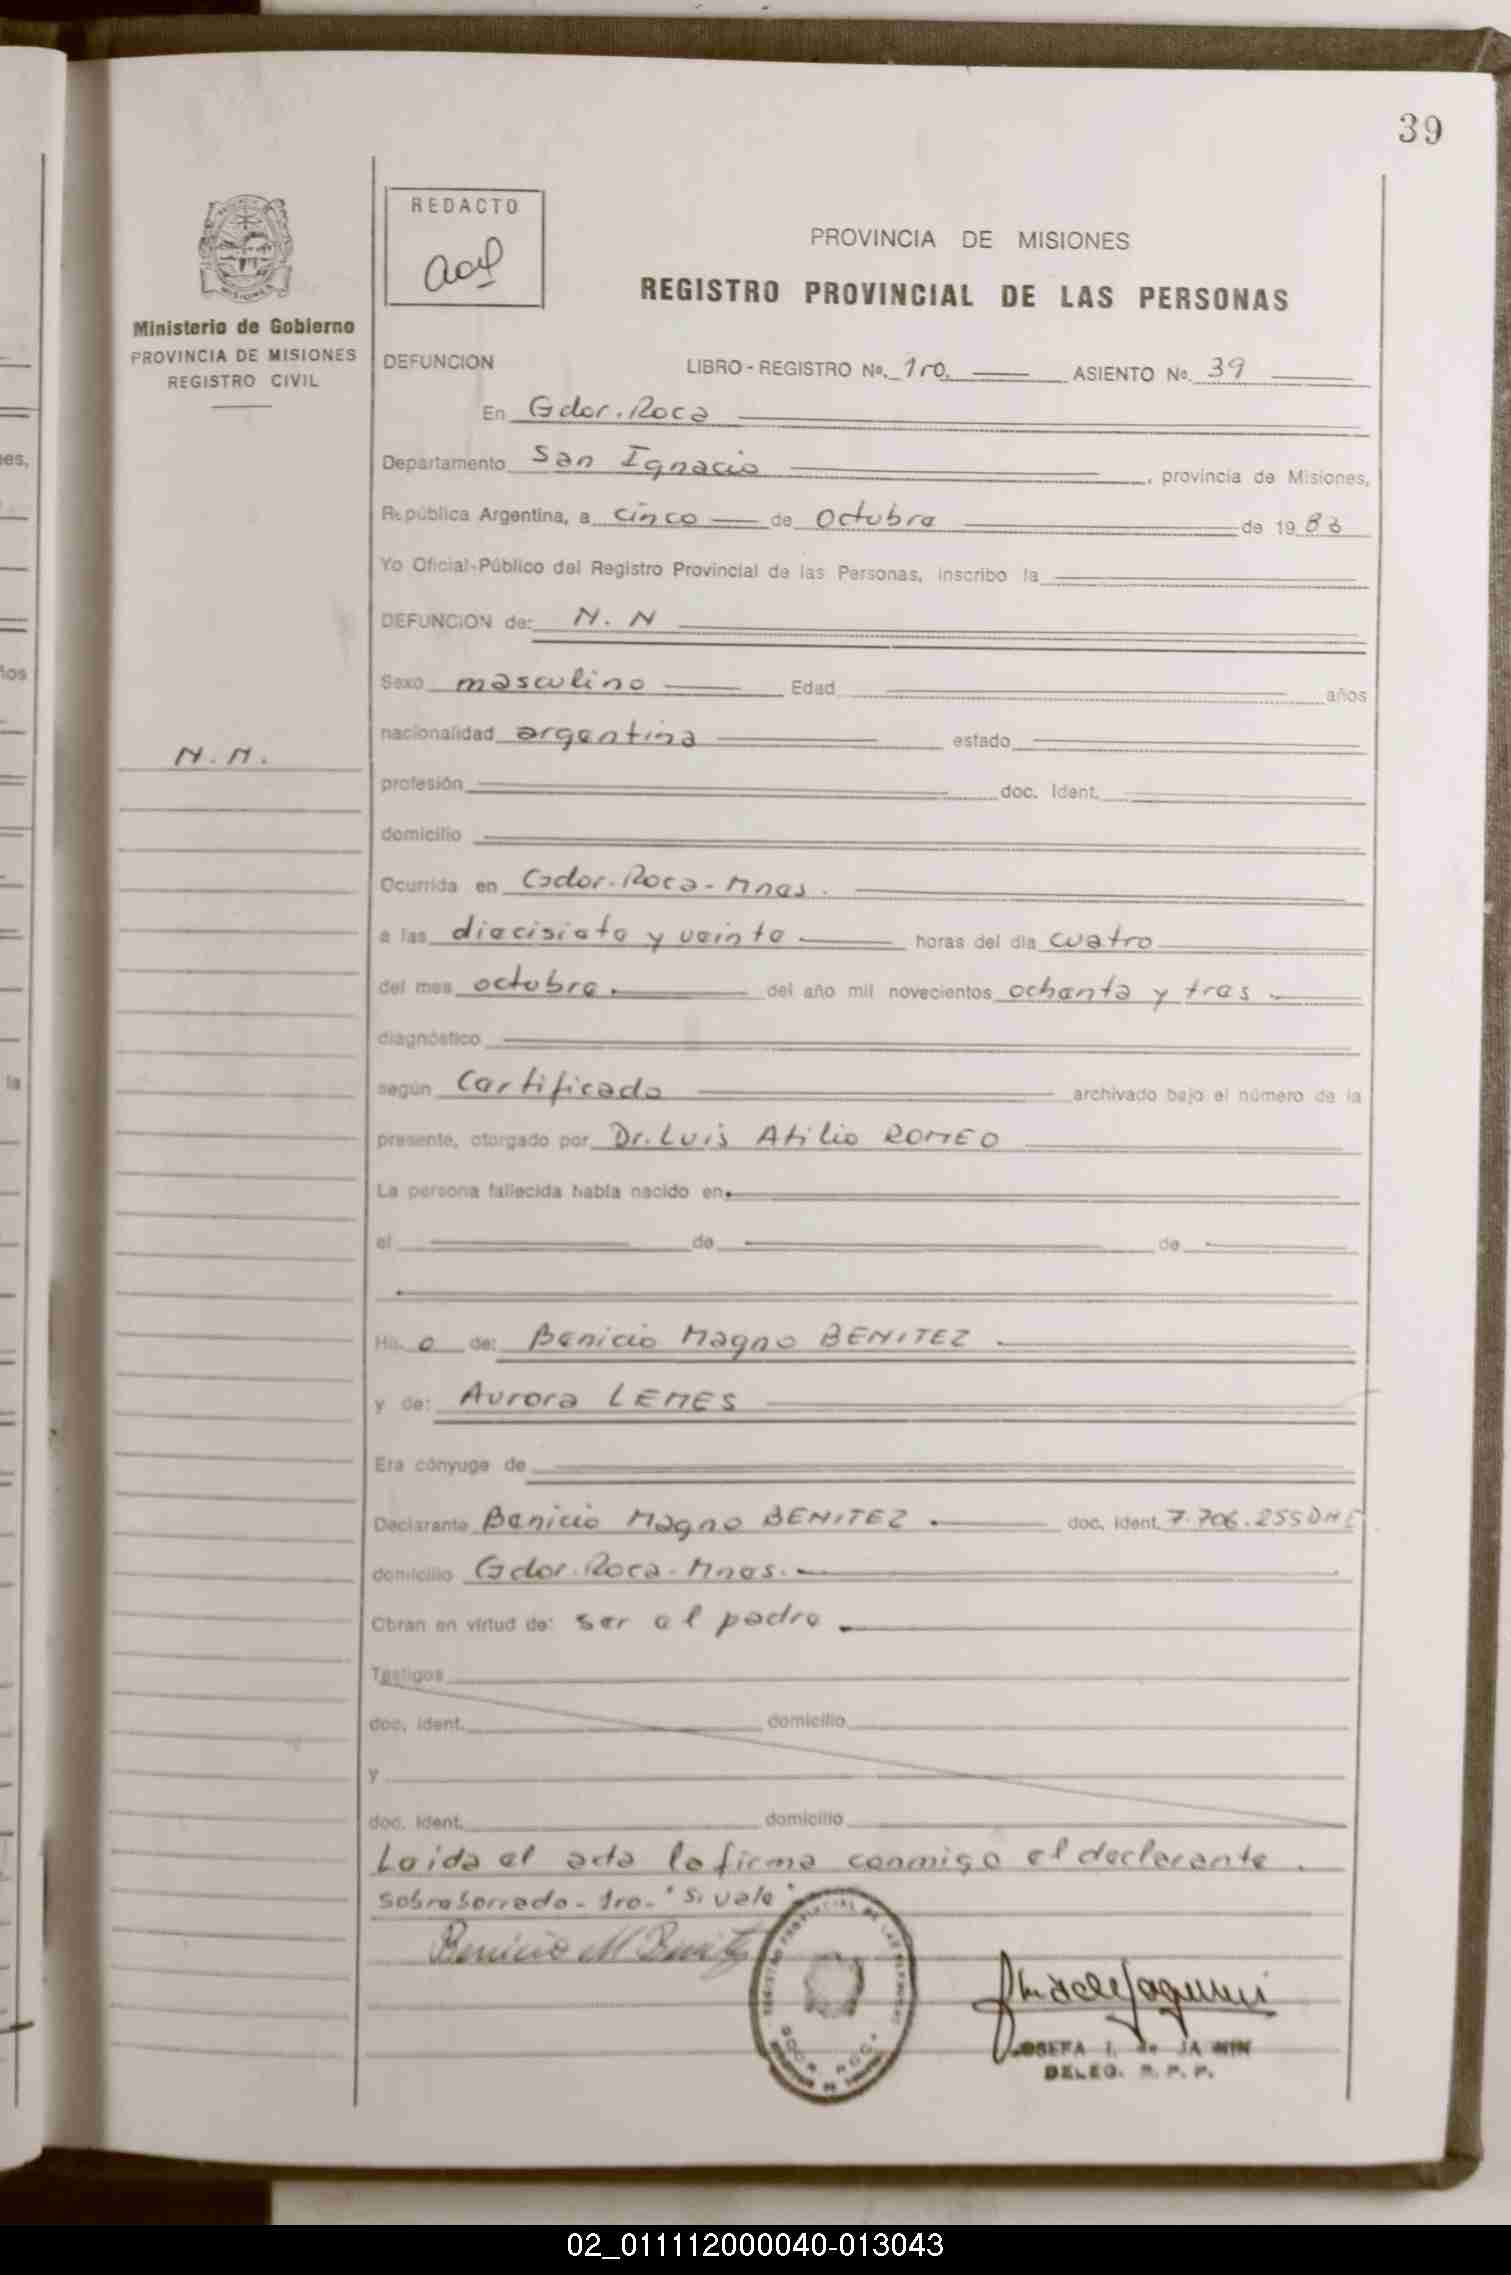 39
REDACTO
PROVINCIA DE MISIONES
REGISTRO PROVINCIAL DE LAS PERSONAS
Ministerio de Gobierno
PROVINCIA DE MISIONES
REGISTRO CIVIL
DEFUNCION LIBRO-REGISTRO No. 1ro. ASIENTO No. 39
En Gdor. Roca
Departamento San Ignacio, provincia de Misiones,
República Argentina, a cinco de octubre de 1983
Yo Oficial-Público del Registro Provincial de las Personas, inscribo la
DEFUNCION de: N. N
Sexo masculino Edad años
nacionalidad argentina estado
N. N.
profesión doc. Ident.
domicilio
Ocurrida en Gdor. Roca - Mnes.
a las diecisiete y veinte horas del día cuatro
del mes octubre. del año mil novecientos ochenta y tres
diagnóstico
según Certificado archivado bajo el número de la
presente, otorgado por Dr. Luis Atilio ROMEO
La persona fallecida había nacido en
el de de
Hij. o de: Benicio Magno BENITEZ
y de: Aurora LEMES
Era cónyuge de
Declarante Benicio Magno BENITEZ. doc. ident. 7.706.255 DNI
domicilio Gdor. Roca - Mnes.
Obran en virtud de: ser el padre.
Testigos
doc. ident. domicilio
y
doc. ident. domicilio
Leida el acta la firma conmigo el declarante.
Sobreborrado - 1ro. "Si vale"
Benicio M Benitez
REGISTRO PROVINCIAL DE LAS PERSONAS
ROCA
JOSEFA I. de
DELEG. R. P. P.
02_011112000040-013043